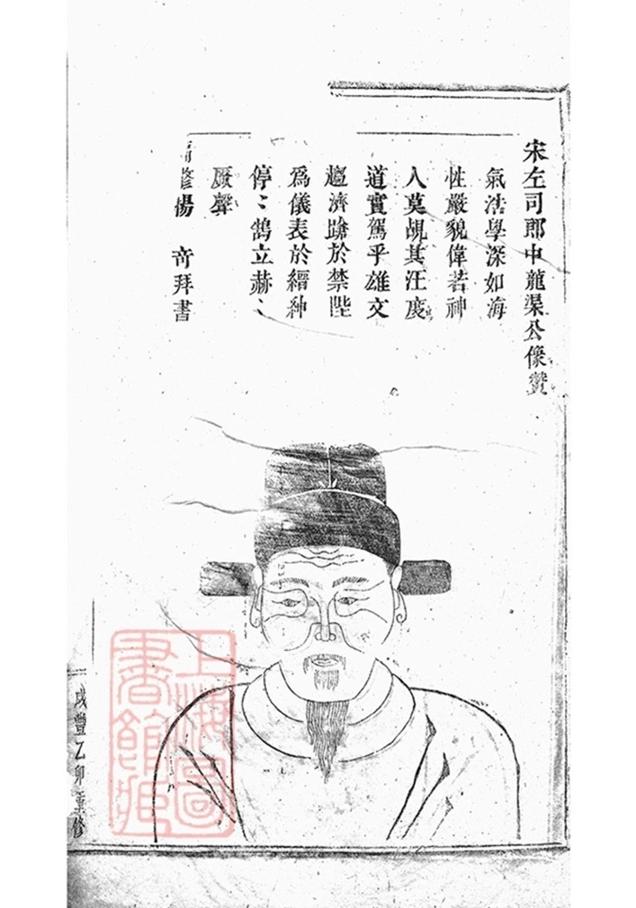 宋左司郎中龍渠公像贊
氣浩學深如海
性嚴貌偉若神
人莫覘其汪度
道實駕乎雄文
趨濟蹌於禁陛
為儀表於縉紳
停〻鵠立赫〻
厥聲
修楊拜書
咸豐乙卯重修
上海圖書館藏